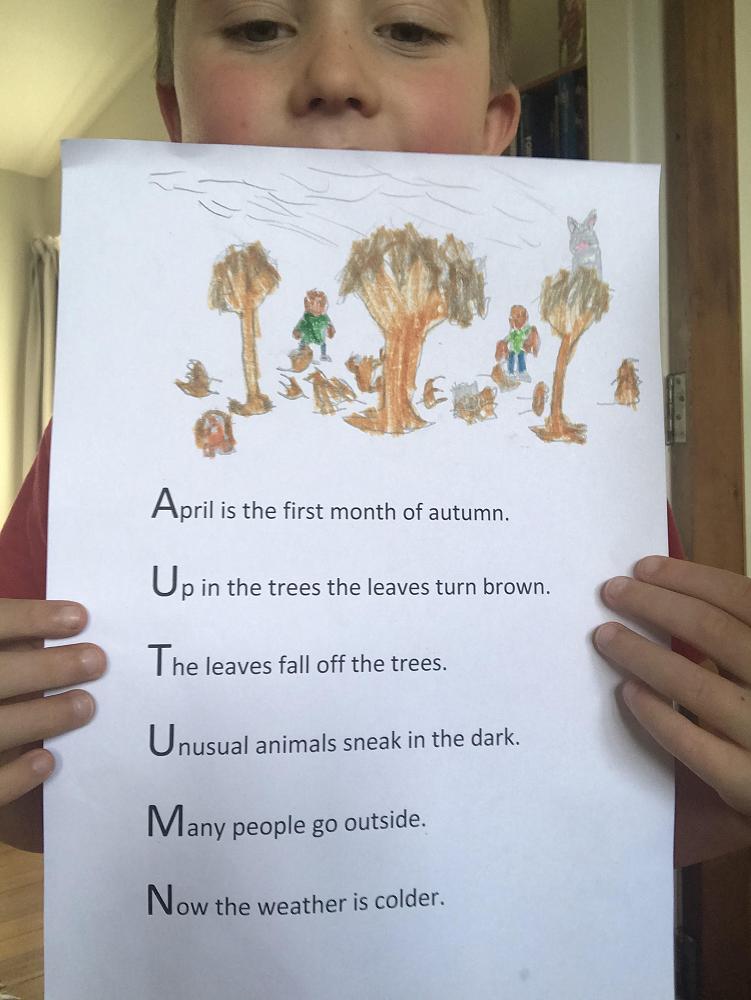 April is the first month of autumn.
Up in the trees the leaves turn brown.
The leaves fall off the trees.
Unusual animals sneak in the dark.
Many people go outside.
Now the weather is colder.